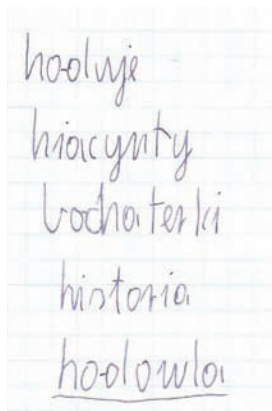 hoduje
hiacynty
bochaterki
historia
hodowla